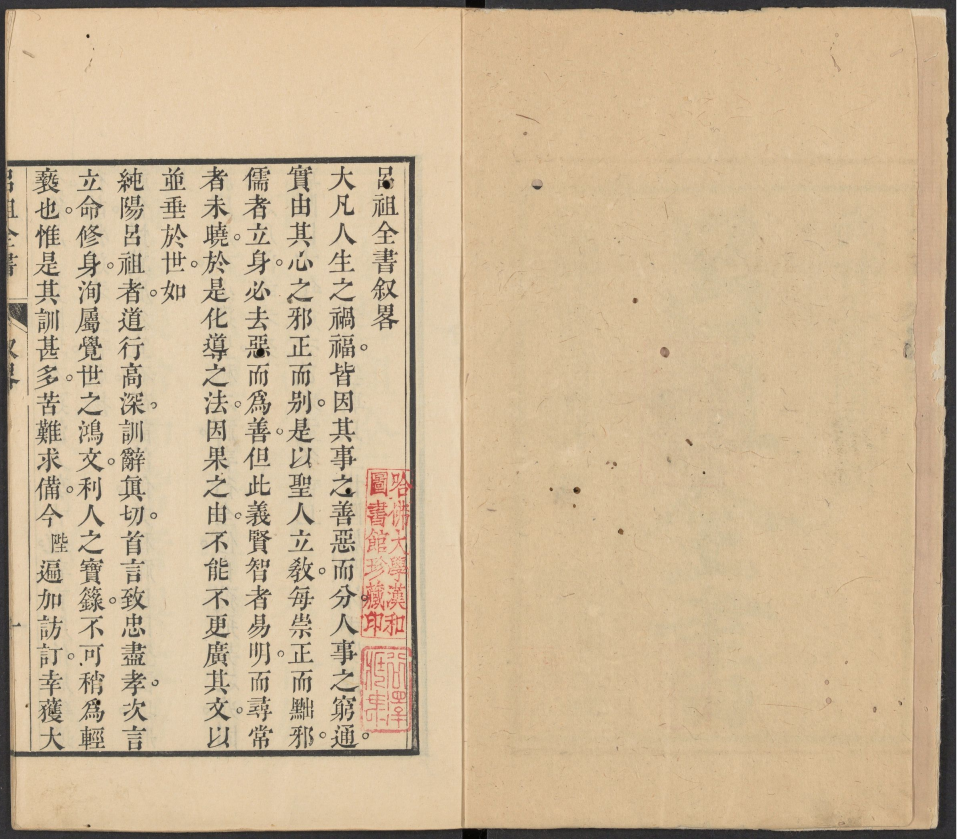 呂祖全書叙畧
大凡人生之禍福。皆因其事之善惡而分。人事之窮通。
實由其心之邪正而別。是以聖人立敎。每崇正而黜邪。
儒者立身。必去惡而爲善。但此義賢智者易明。而尋常
者未曉。於是化導之法。因果之由。不能不更廣其文。以
並垂於世。如
純陽呂祖者。道行高深。訓辭眞切。首言致忠盡孝。次言
立命修身。洵屬覺世之鴻文。利人之寶籙。不可稍爲輕
褻也。惟是其訓甚多。苦難求備。今陛遍加訪訂。幸獲大
呂祖全書
叙畧
一
哈佛大學漢和
圖書館珍藏印